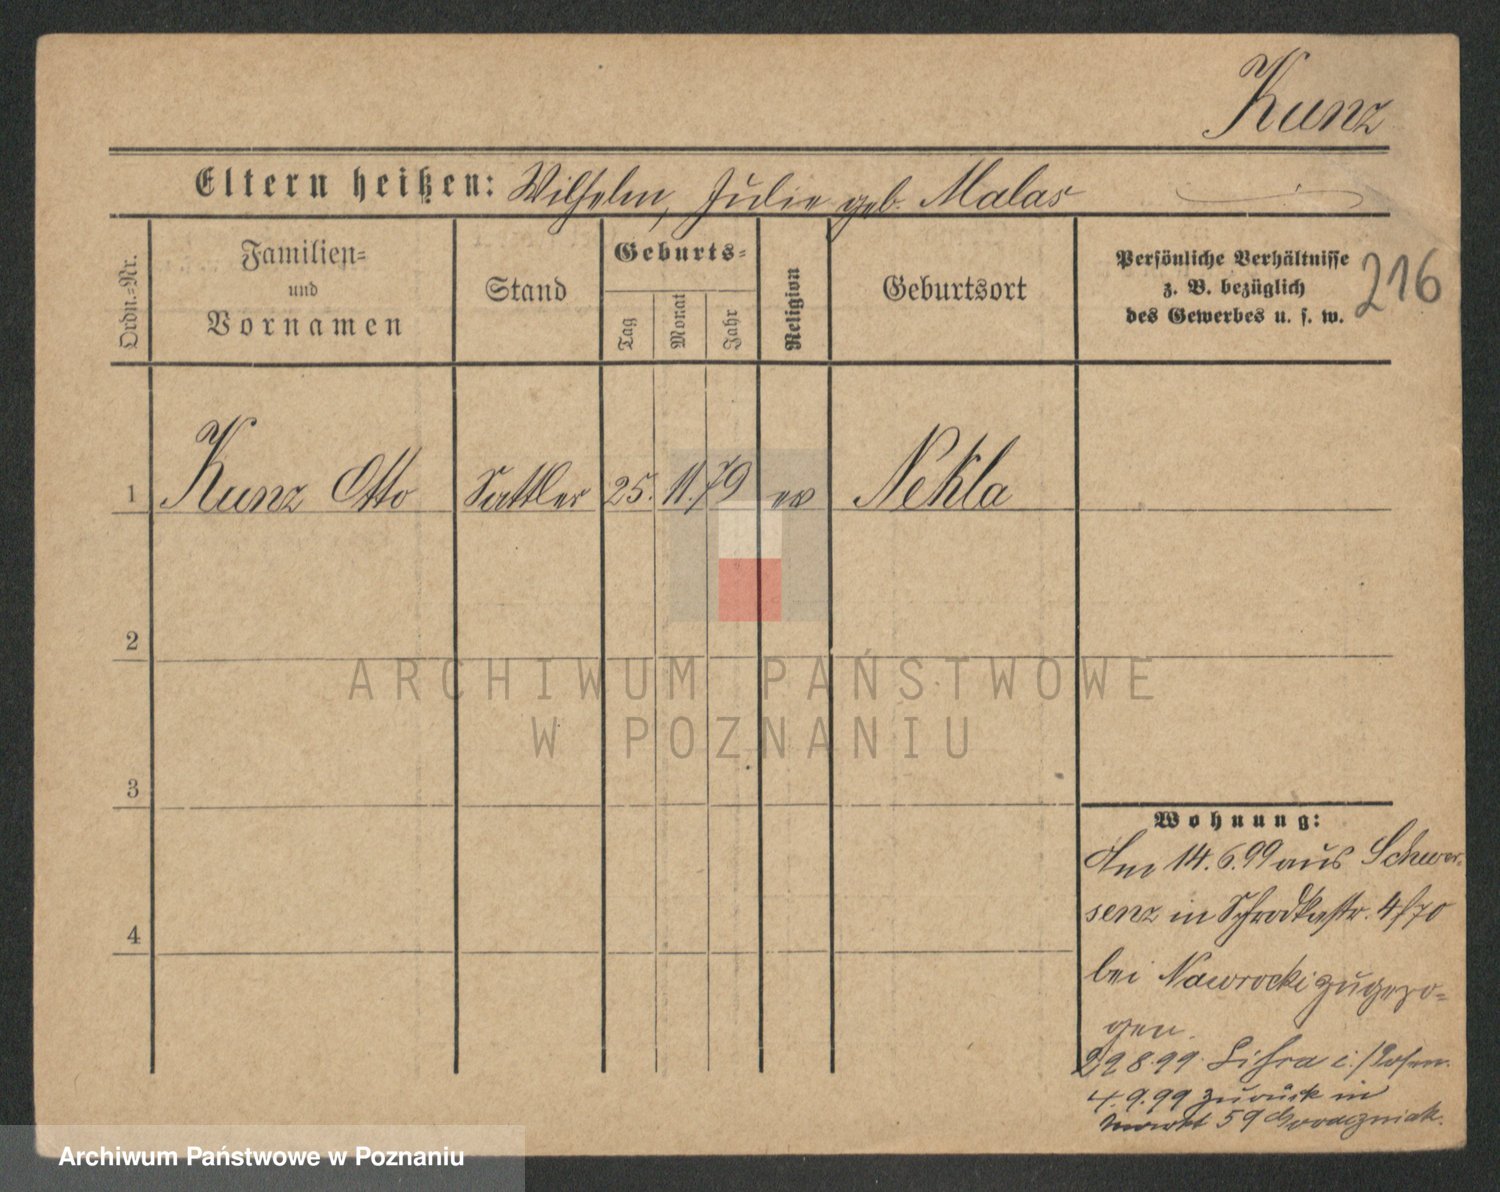 Kunz
Eltern heißen: Wilhelm, Julie geb. Malas
216
Ordn.-Nr.
Familien-
und
Vornamen
Stand
Geburts-
Tag
Monat
Jahr
Religion
Geburtsort
Persönliche Verhältnisse
z. B. bezüglich
des Gewerbes u. s. w.
1 Kunz Otto Sattler 25. 11. 79 ev Nekla
2
3
4
Wohnung:
Am 14.6.99 aus Schwer-
senz in Schrodkastr. 4/70
bei Nawrocki zugezo-
gen.
29.8.99 i./Posen.
4.9.99 zurück in
Markt 59
ARCHIWUM PAŃSTWOWE
W POZNANIU
Archiwum Państwowe w Poznaniu